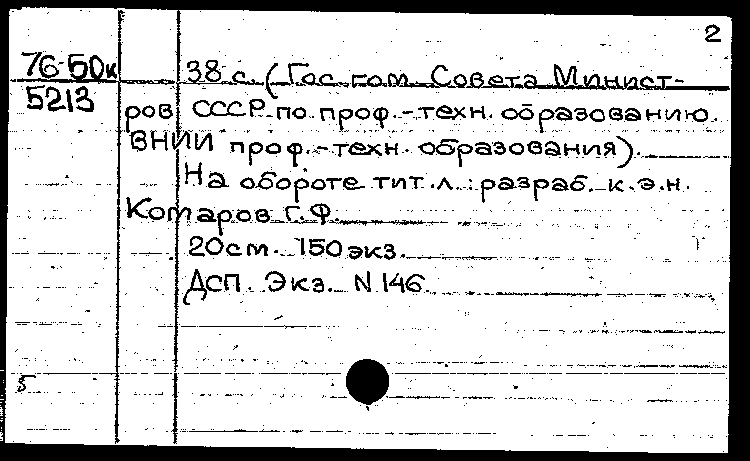 2
76-50к 38 с. (Гос. ком. Совета Минист-
5213 ров СССР по проф.-техн. образованию.
ВНИИ проф.-техн. образования).
На обороте тит. л.: разраб. к.э.н.
Комаров Г.Ф.
20 см. 150 экз.
ДСП. Экз. N 146.
5